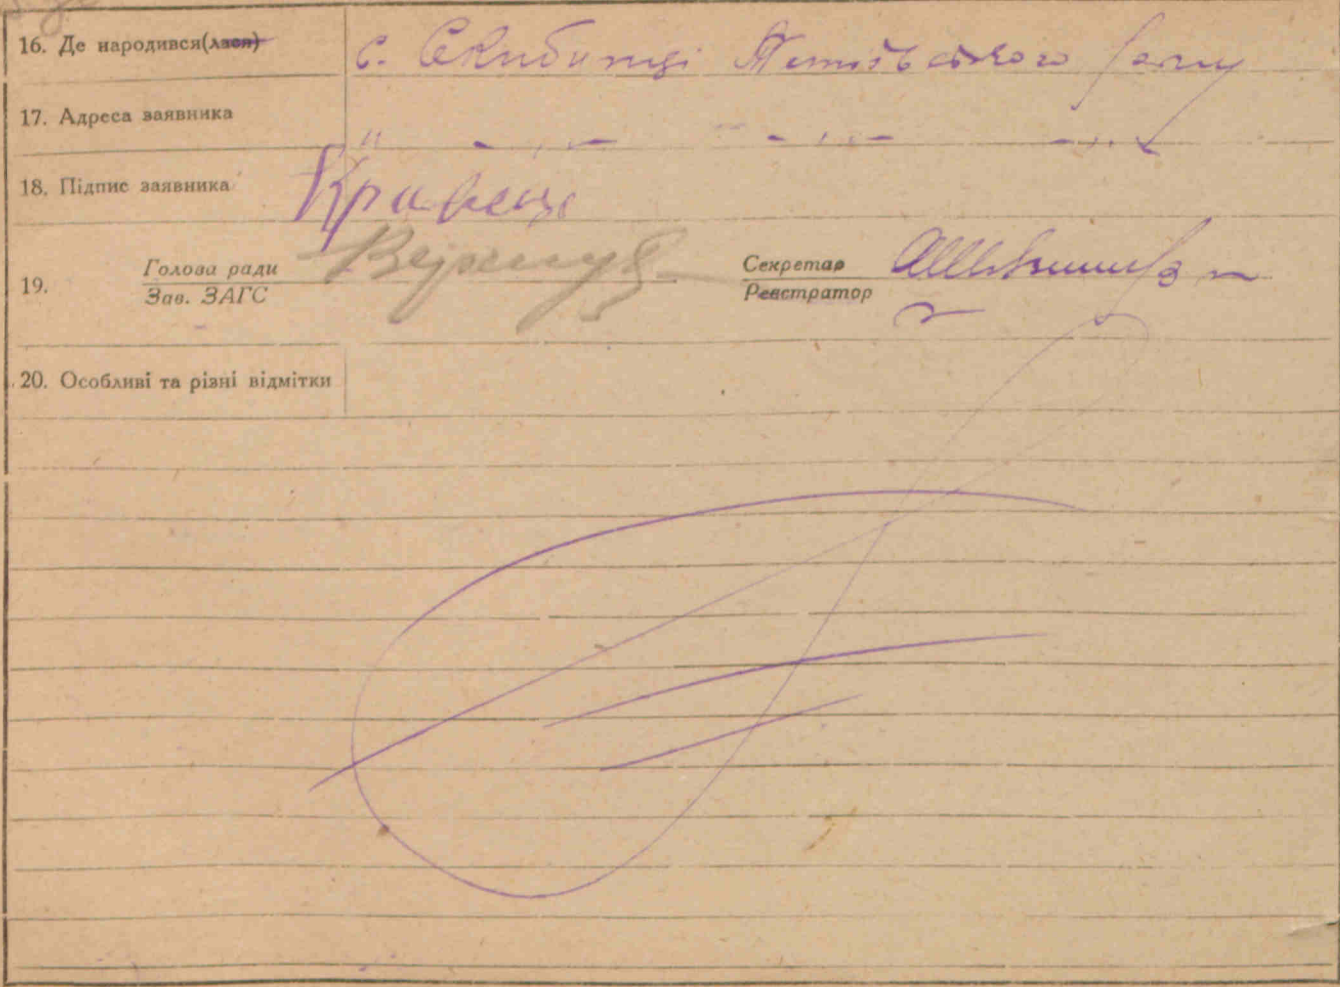 16. Де народився(лася) с. Скибинці Тетіївського р-ну
17. Адреса заявника -"- -"- -"- -"-
18. Підпис заявника Кравець
19. Голова ради Секретар
Зав. ЗАГС Реєстратор
20. Особливі та різні відмітки